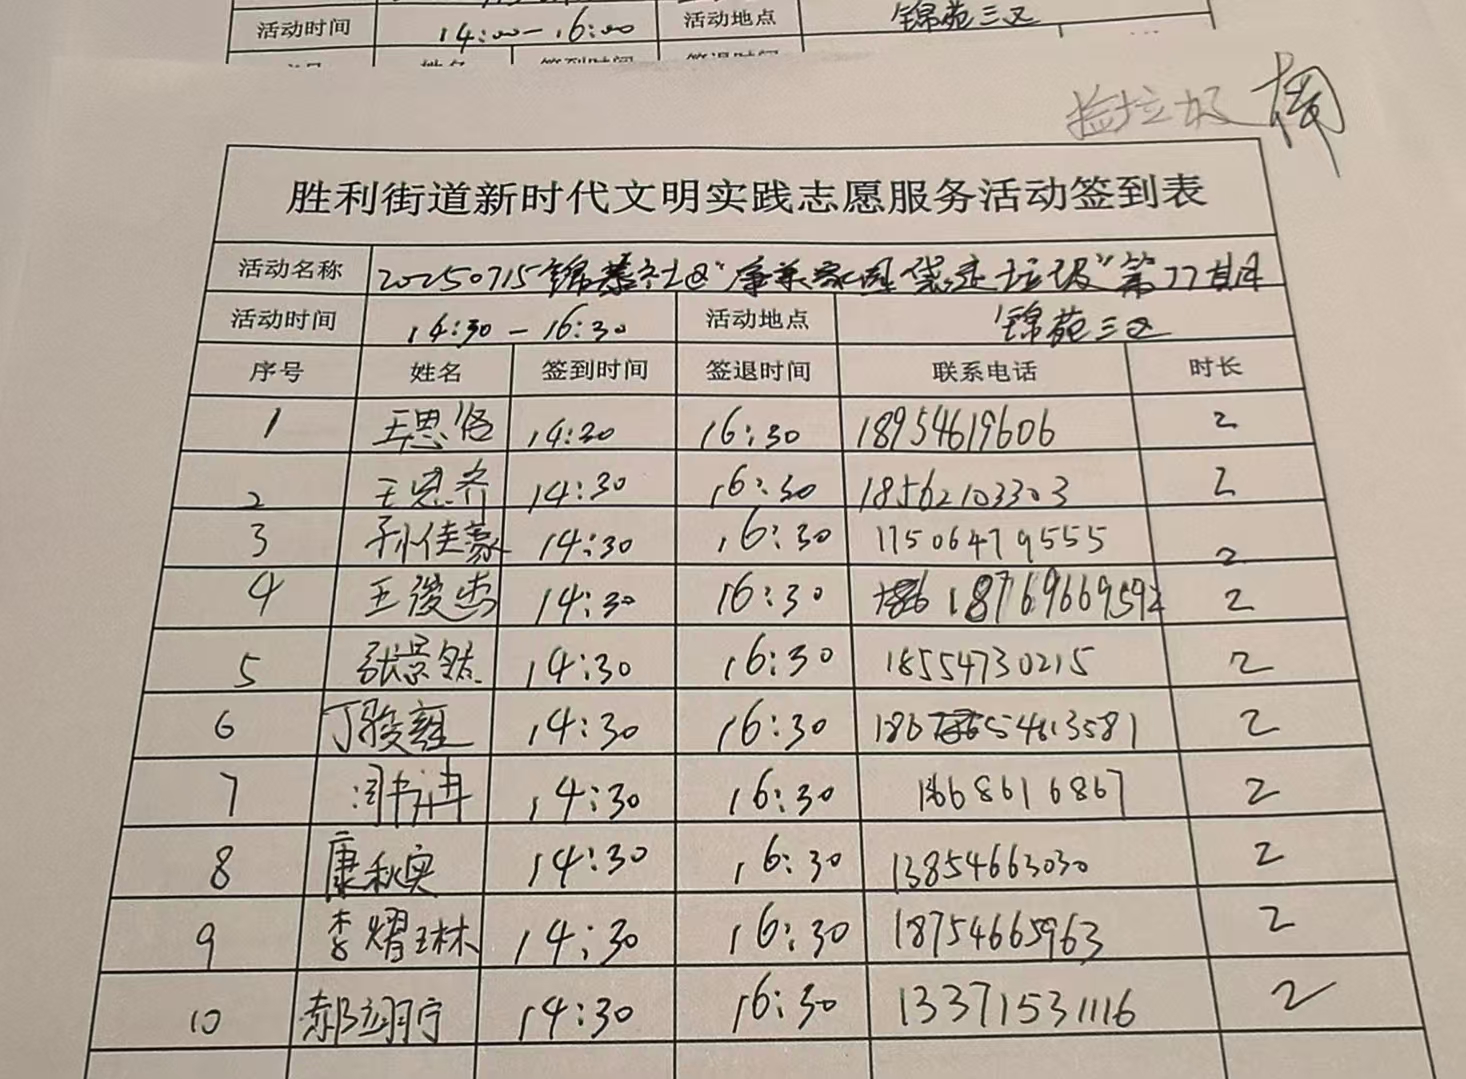 活动时间 14:00-16:00 活动地点 锦苑三区
姓名 签到时间 签退时间
捡垃圾
胜利街道新时代文明实践志愿服务活动签到表
活动名称 20250715锦苑社区“康美家园 袋走垃圾”第77期
活动时间 14:30-16:30 活动地点 锦苑三区
序号 姓名 签到时间 签退时间 联系电话 时长
1 王思 14:30 16:30 18954619606 2
2 王思齐 14:30 16:30 18562103303 2
3 孙佳豪 14:30 16:30 17506479555 2
4 王俊杰 14:30 16:30 18769669592 2
5 张景 14:30 16:30 18554730215 2
6 丁骏 14:30 16:30 2
7 14:30 16:30 2
8 康秋奕 14:30 16:30 13854663030 2
9 李熠琳 14:30 16:30 18754665963 2
10 郝翊宁 14:30 16:30 13371531116 2